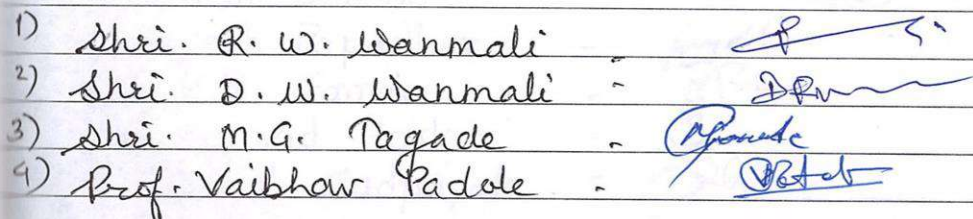 1) Shri. R. W. Wanmali -
2) Shri. D. W. Wanmali -
3) Shri. M. G. Tagade -
4) Prof. Vaibhav Padole -